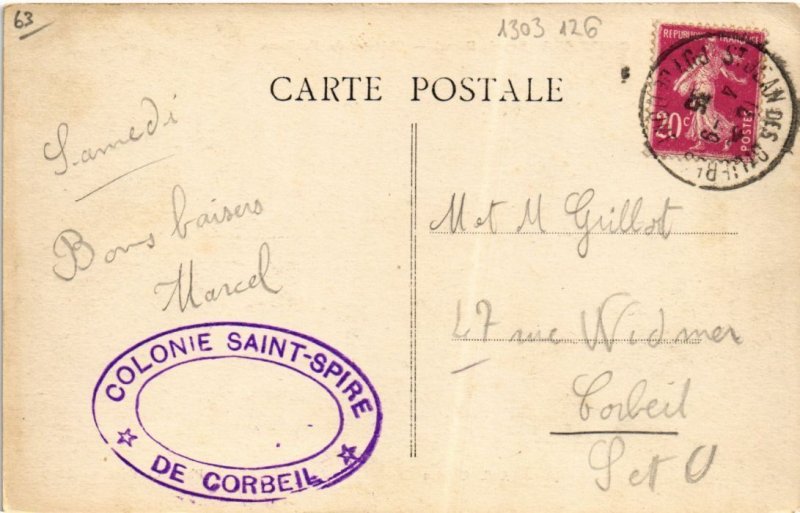 63
1303 126
CARTE POSTALE
REPUBLIQUE FRANÇAISE
20c
POSTES
ST JEAN DES OLLIERES
PUY DE DOME
Samedi
Bons baisers
Marcel
M et M Grillot
47 rue Widmer
Corbeil
S et O
COLONIE SAINT-SPIRE
DE CORBEIL